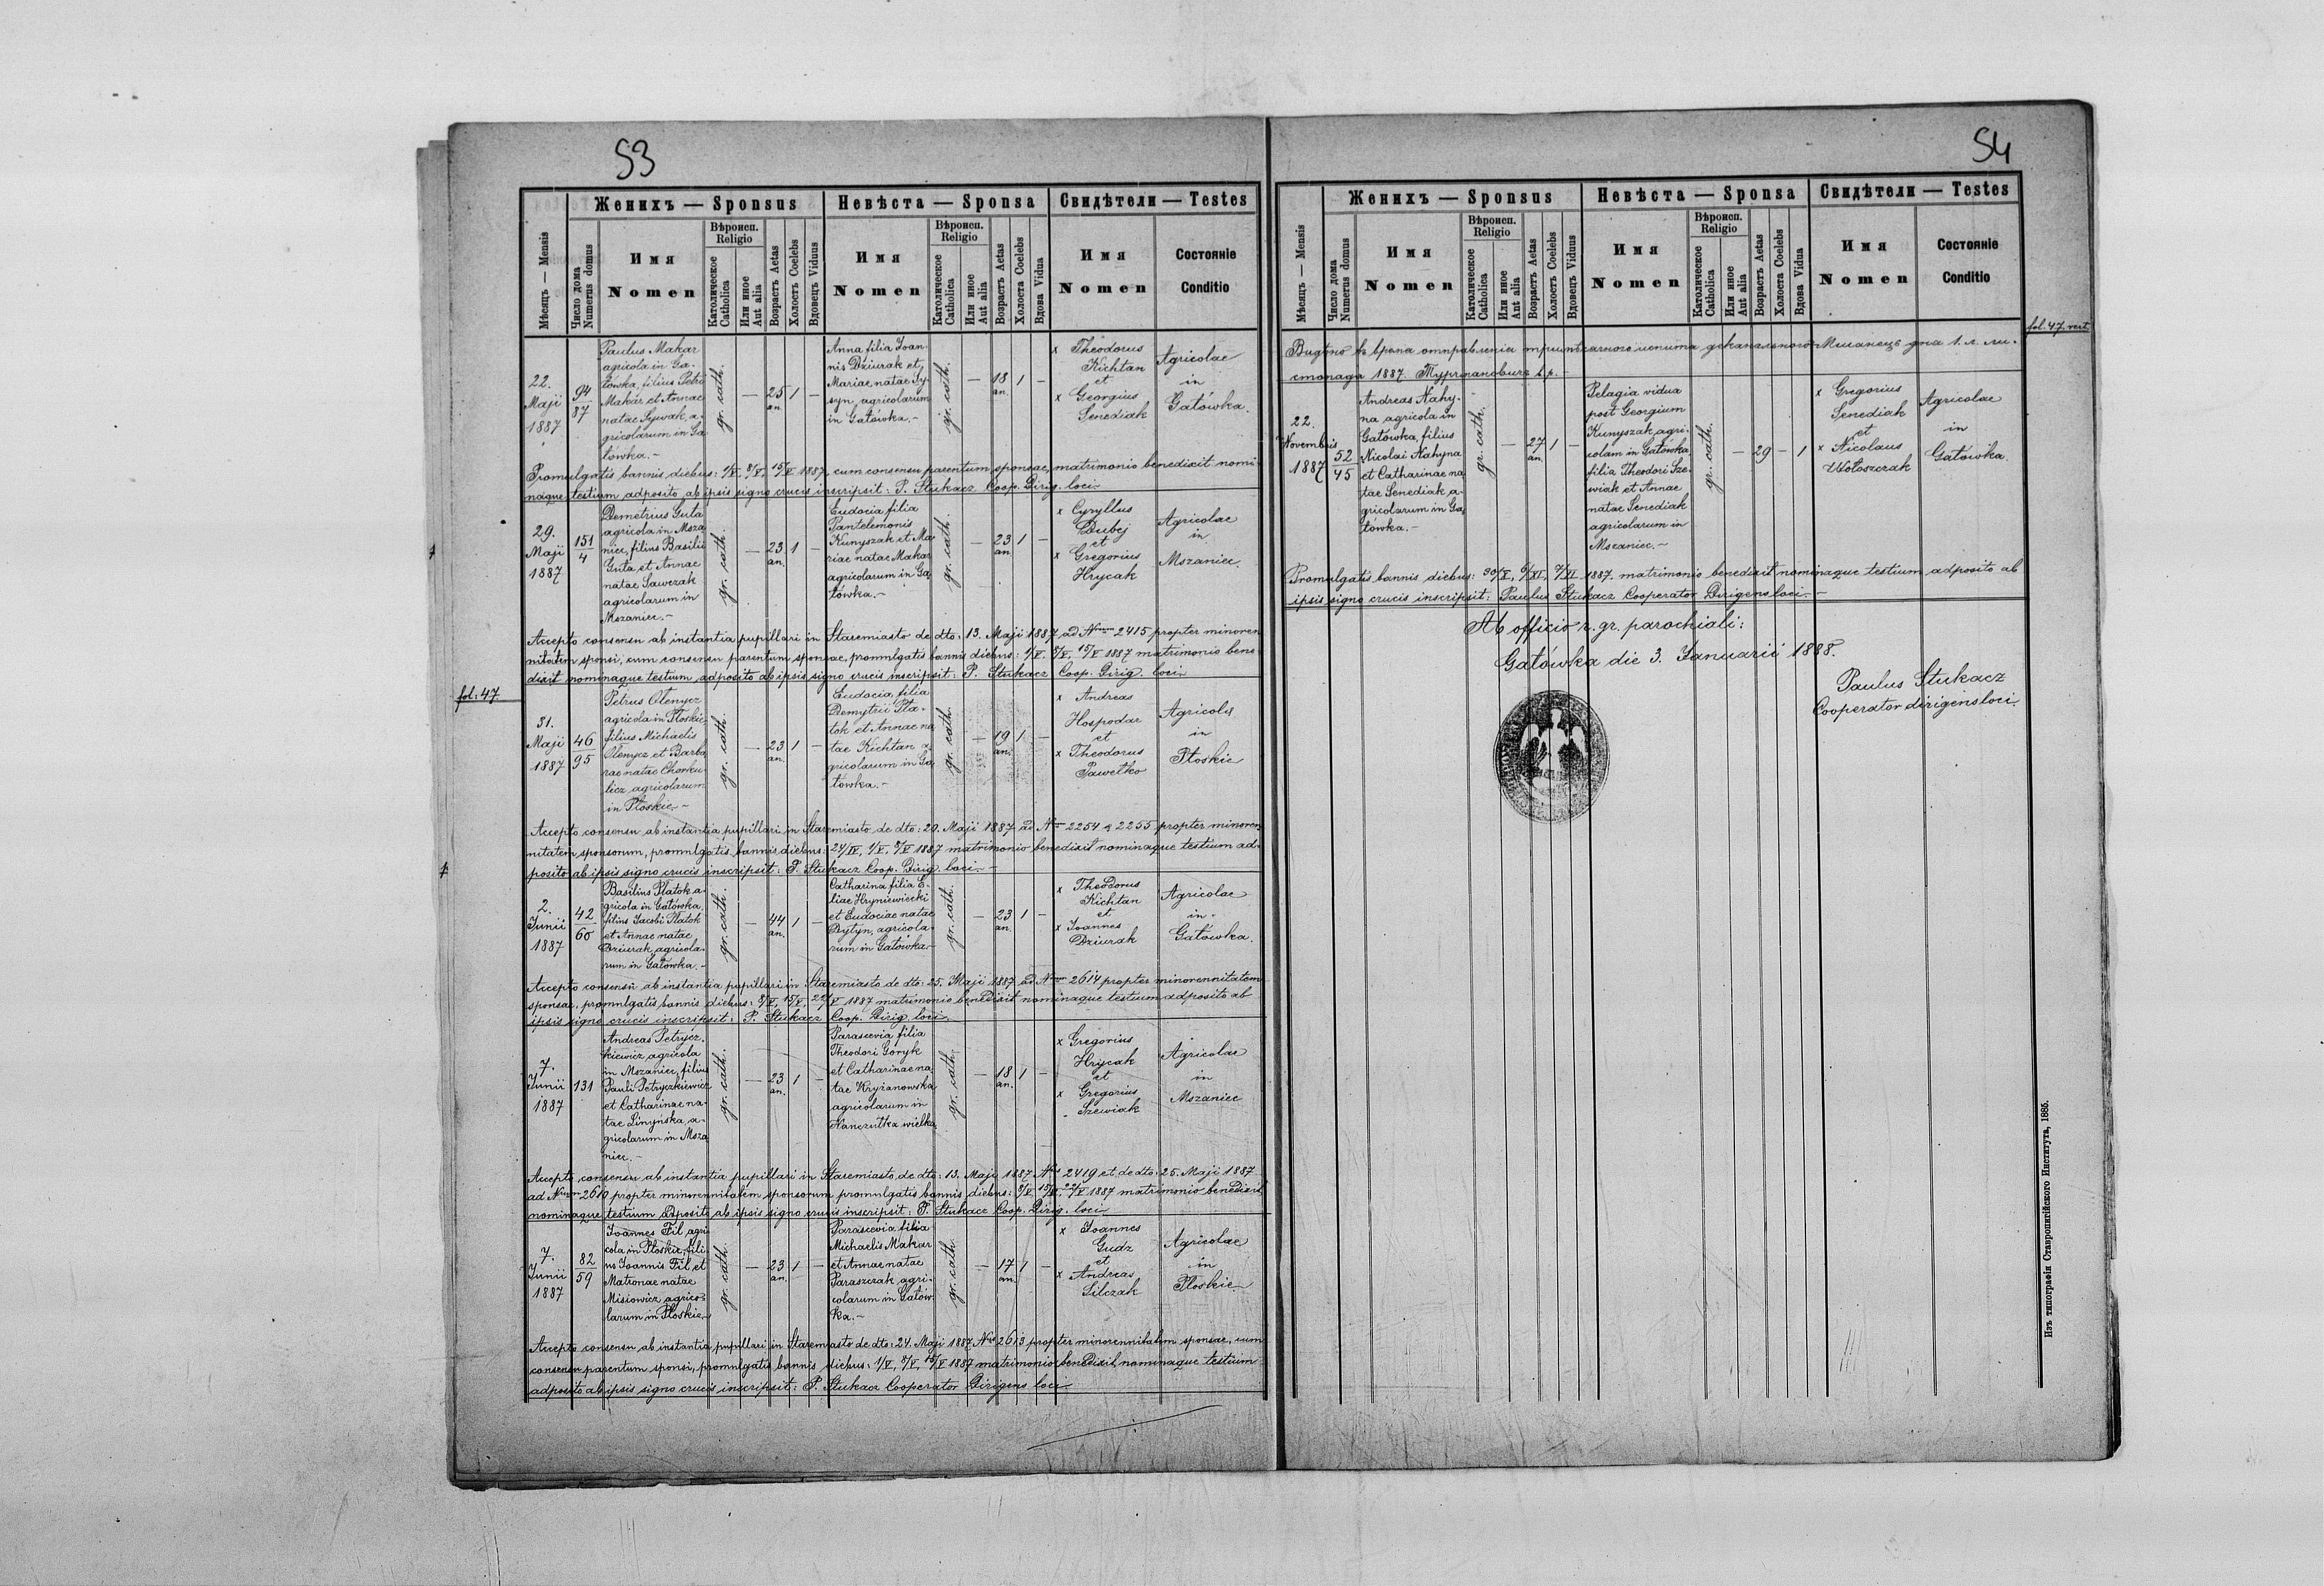 53
Женихъ — Sponsus
Невѣста — Sponsa
Свидѣтели — Testes
Мѣсяцъ — Mensis
Число дома
Numerus domus
Имя
Nomen
Вѣроисп.
Religio
Католическое
Catholica
Или иное
Aut alia
Возрастъ Aetas
Холостъ Coelebs
Вдовецъ Viduus
Имя
Nomen
Вѣроисп.
Religio
Католическое
Catholica
Или иное
Aut alia
Возрастъ Aetas
Холоста Coelebs
Вдова Vidua
Имя
Nomen
Состояніе
Conditio
22.
Maji
1887
94
87
Paulus Makar
agricola in Ga-
łówka, filius Petri
Makar et Annae
natae Sywak, a-
gricolarum in Ga
łówka.-
gr. cath.
—
25
an.
1
—
Anna filia Joan-
nis Dziurak et
Mariae, natae Sy-
syn, agricolarum
in Gałówka.-
gr. cath.
—
18
an.
1
—
x Theodorus
Kichtan
et
x Georgius
Senediak
Agricolae
in
Gałówka.
Promulgatis bannis diebus: 1/V, 8/V, 15/V 1887, cum consensu parentum sponsae, matrimonio benedixit nomi-
naque testium adposito ab ipsis signo crucis inscripsit: P. Stukacz Coop. Dirig. loci.-
29.
Maji
1887
151
4
Demetrius Guta
agricola in Msza
niec, filius Basilii
Guta et Annae
natae Sawczak
agricolarum in
Mszaniec.-
gr. cath.
—
23
an.
1
—
Eudocia filia
Pantelemonis
Kunyszak et Ma-
riae natae Makar
agricolarum in Ga
łówka.-
gr. cath.
—
23
an.
1
—
x Cyryllus
Dubej
et
x Gregorius
Hrycak
Agricolae
in
Mszaniec.
Accepto consensu ab instantia pupillari in Staremiasto de dto: 13. Maji 1887 ad Nrum 2415 propter minoren
nitatem sponsi, cum consensu parentum sponsae, promulgatis bannis diebus: 1/V. 8/V. 15/V 1887 matrimonio bene-
dixit nominaque testium adposito ab ipsis signo crucis inscripsit: P. Stukacz Coop. Dirig. loci.-
fol: 47.
31.
Maji
1887
46
95
Petrus Olenycz
agricola in Płoskie,
filius Michaelis
Olenycz et Barba
rae natae Chorku-
licz agricolarum
in Płoskie.-
gr. cath.
—
23
an.
1
—
Eudocia, filia
Demytrii Pła-
tok et Annae na
tae Kichtan a-
gricolarum in Ga
łówka.-
gr. cath.
—
19
an.
1
—
x Andreas
Hospodar
et
x Theodorus
Pawełko
Agricolae
in
Płoskie
Accepto consensu ab instantia pupillari in Staremiasto de dto: 20. Maji 1887 ad Nrum 2254 & 2255 propter minoren
nitatem sponsorum, promulgatis bannis diebus: 24/IV, 1/V. 8/V 1887 matrimonio benedixit nominaque testium ad-
posito ab ipsis signo crucis inscripsit: P. Stukacz Coop. Dirig. loci.-
2.
Junii
1887
42
60
Basilius Płatok a-
gricola in Gałówka,
filius Jacobi Płatok
et Annae natae
Dziurak, agricola-
rum in Gałówka.-
gr. cath.
—
44
an.
1
—
Catharina filia E-
liae Hryniewiecki
et Eudociae natae
Dytyn, agricola-
rum in Gałówka.-
gr. cath.
—
23
an.
1
—
x Theodorus
Kichtan
et
x Joannes
Dziurak
Agricolae
in
Gałówka.
Accepto consensu ab instantia pupillari in Staremiasto de dto: 25. Maji 1887 ad Nrum 2614 propter minorennitatem
sponsae, promulgatis bannis diebus: 8/V, 15/V, 22/V 1887 matrimonio benedixit nominaque testium adposito ab
ipsis signo crucis inscripsit: P. Stukacz Coop. Dirig. loci.
7.
Junii
1887
131
Andreas Petrycz-
kiewicz, agricola
in Mszaniec, filius
Pauli Petryczkiewicz
et Catharinae na-
tae Linyńska, a-
gricolarum in Msza
niec.-
gr. cath.
—
23
an.
1
—
Parascevia filia
Theodori Goryk
et Catharinae na-
tae Kryżanowska
agricolarum in
Hanczułka wielka
gr. cath.
—
18
an.
1
—
x Gregorius
Hrycak
et
x Gregorius
Szewiak
Agricolae
in
Mszaniec
Accepto consensu ab instantia pupillari in Staremiasto de dto: 13. Maji 1887 Nrs 2419 et de dto: 25. Maji 1887
ad Nrum 2610 propter minorennitatem sponsorum promulgatis bannis diebus: 8/V 15/V, 22/V 1887 matrimonio benedixit
nominaque testium adposito ab ipsis signo crucis inscripsit: P. Stukacz Coop. Dirig. loci
7.
Junii
1887
82
59
Joannes Fil agri-
cola in Płoskie, fili-
us Joannis Fil et
Matronae natae
Misiowicz, agrico-
larum in Płoskie.-
gr. cath.
—
23
an.
1
—
Parascevia filia
Michaelis Makar
et Annae natae
Paraszczak agri-
colarum in Gałów
ka.-
gr. cath.
—
17
an.
1
—
x Joannes
Gudz
et
x Andreas
Silczak
Agricolae
in
Płoskie.
Accepto consensu ab instantia pupillari in Staremiasto de dto: 24. Maji 1887 Nrs 2613 propter minorennitatem sponsae, cum
consensu parentum sponsi, promulgatis bannis diebus: 1/V, 8/V, 15/V 1887 matrimonio benedixit nominaque testium
adposito ab ipsis signo crucis inscripsit: P. Stukacz Cooperator Dirigens loci
54
Женихъ — Sponsus
Невѣста — Sponsa
Свидѣтели — Testes
Мѣсяцъ — Mensis
Число дома
Numerus domus
Имя
Nomen
Вѣроисп.
Religio
Католическое
Catholica
Или иное
Aut alia
Возрастъ Aetas
Холостъ Coelebs
Вдовецъ Viduus
Имя
Nomen
Вѣроисп.
Religio
Католическое
Catholica
Или иное
Aut alia
Возрастъ Aetas
Холоста Coelebs
Вдова Vidua
Имя
Nomen
Состояніе
Conditio
fol. 47. vert
Видѣно въ время отправленія испита деканального Мшанець дня 1. л. ли-
стопада 1887
22.
Novembris
1887
52
45
Andreas Nahy-
na agricola in
Gałówka, filius
Nicolai Nahyna
et Catharinae na
tae Senediak a-
gricolarum in Ga
łówka.-
gr. cath.
—
27
an.
1
—
Pelagia vidua
post Georgium
Kunyszak agri-
colam in Gałówka
filia Theodori Sze-
wiak et Annae
natae Senediak
agricolarum in
Mszaniec.-
gr. cath.
—
29
—
1
x Gregorius
Senediak
et
x Nicolaus
Wołoszczak
Agricolae
in
Gałówka.
Promulgatis bannis diebus: 30/X, 6/XI, 7/XI 1887. matrimonio benedixit nominaque testium adposito ab
ipsis signo crucis inscripsit: Paulus Stukacz Cooperator Dirigens loci.-
Ab officio r. gr. parochiali:
Gałówka die 3. Januarii 1888.
Paulus Stukacz
Cooperator dirigens loci.
Изъ типографіи Ставропигійского Института, 1885.